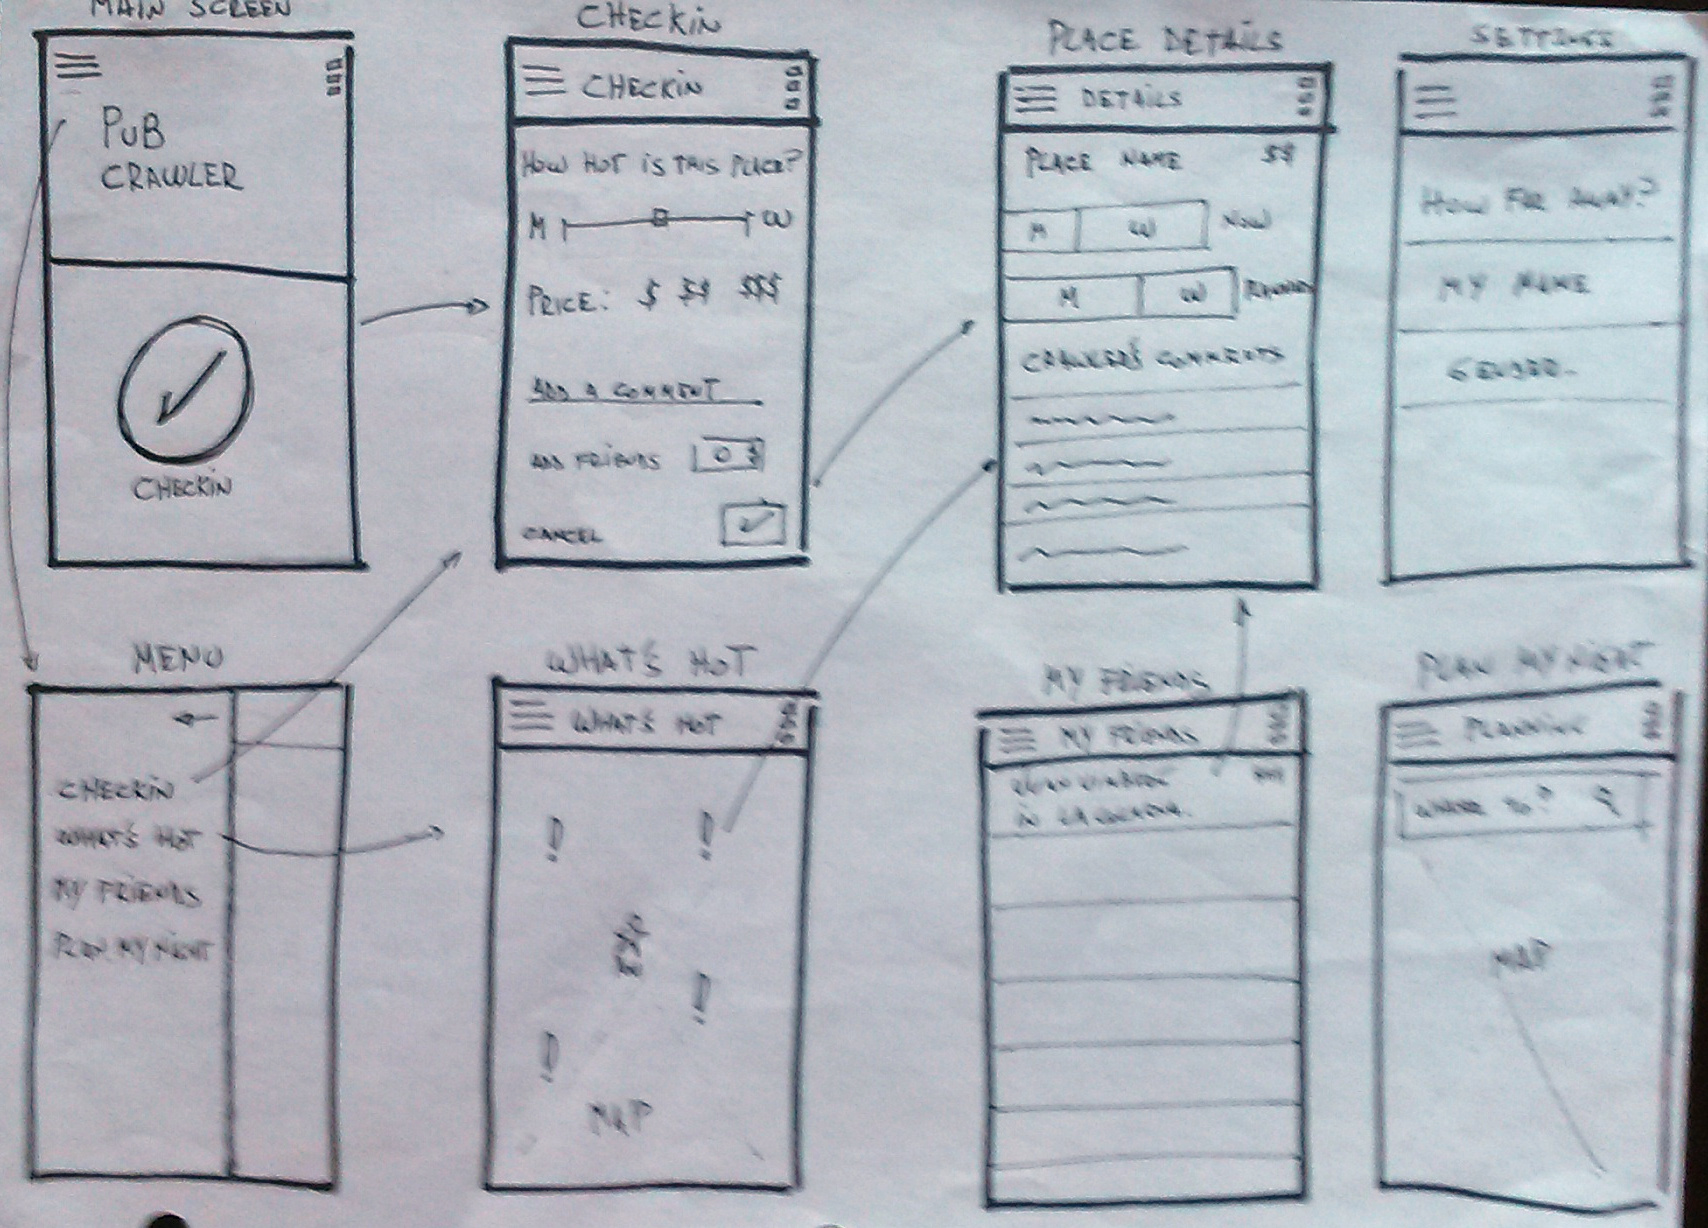 MAIN SCREEN
PUB
CRAWLER
CHECKIN
CHECKIN
CHECKIN
HOW HOT IS THIS PLACE?
M W
PRICE: $ $$ $$$
ADD A COMMENT
ADD FRIENDS 0
CANCEL
PLACE DETAILS
DETAILS
PLACE NAME $$
M W NOW
M W PLANNED
CRAWLER'S COMMENTS
SETTINGS
HOW FAR AWAY?
MY NAME
GENDER
MENU
CHECKIN
WHAT'S HOT
MY FRIENDS
PLAN MY NIGHT
WHAT'S HOT
WHAT'S HOT
MAP
MY FRIENDS
MY FRIENDS
IN
PLAN MY NIGHT
PLANNING
WHERE TO?
MAP